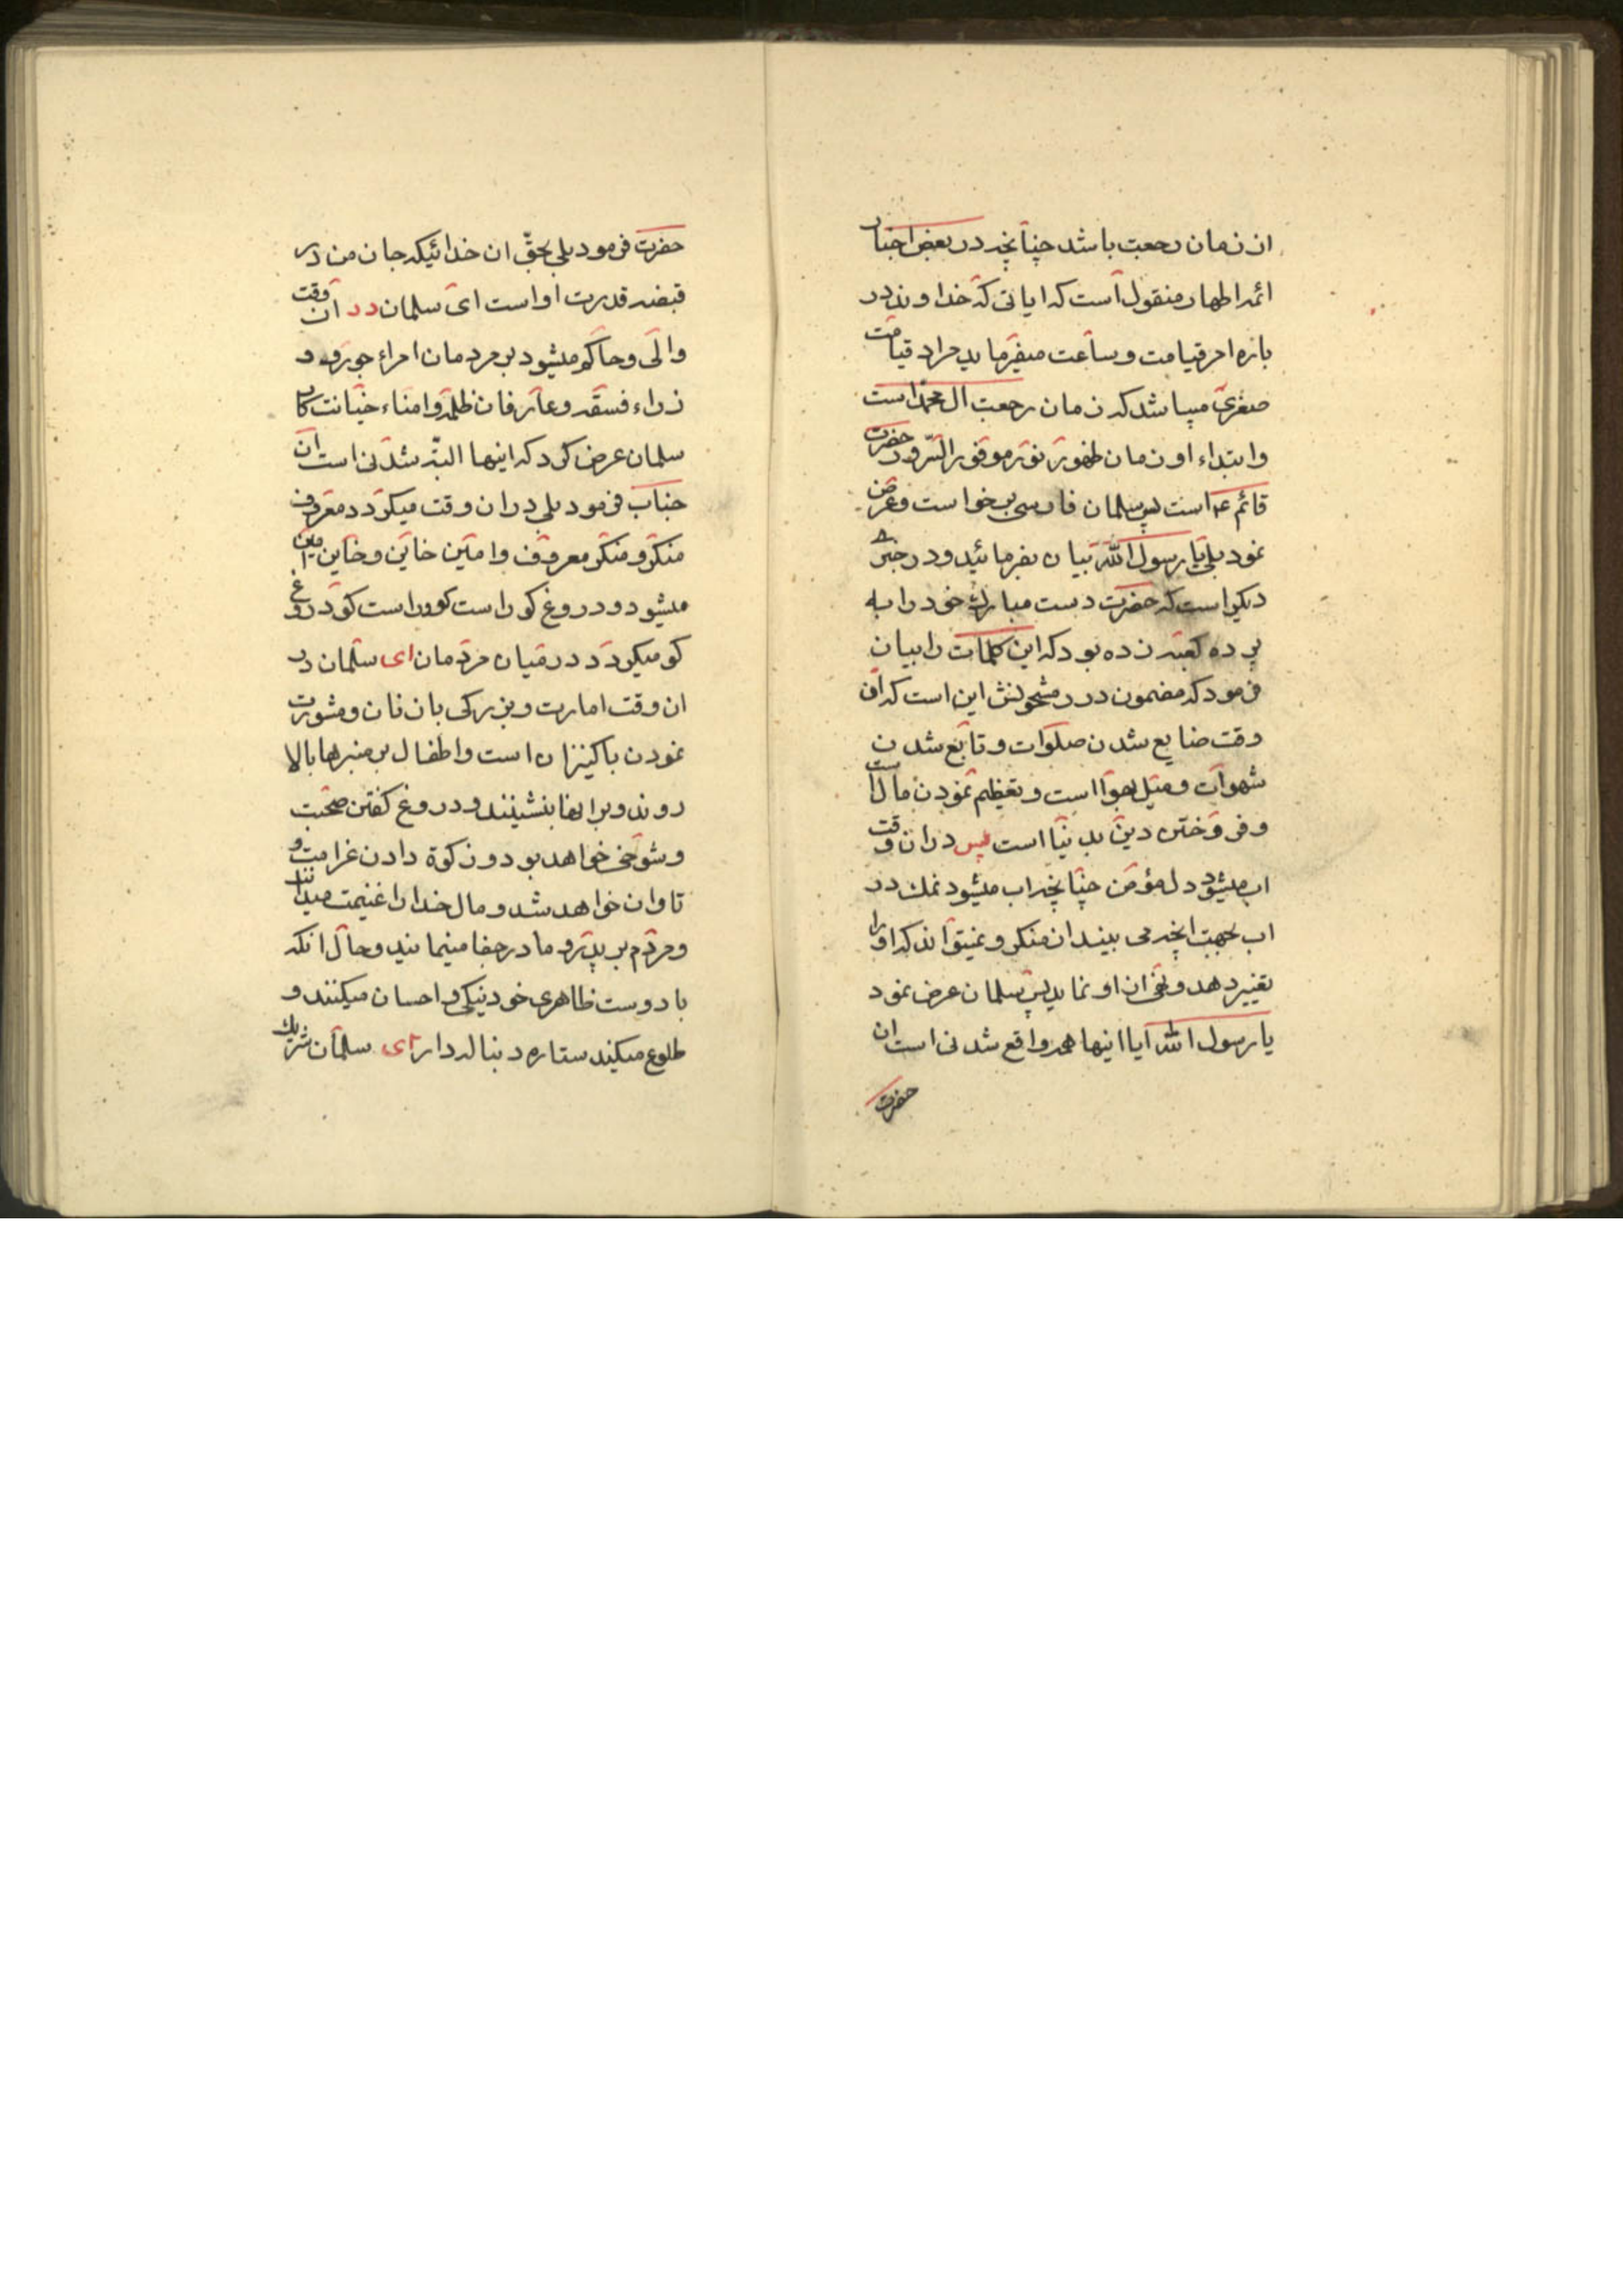 از زمان رجعت باشد چنانچه در بعض اخبار
ائمه اطهار منقول است که ایاتی که خداوند در
باره امر قیامت و ساعت میفرماید مراد قیامت
صغری میباشد که زمان رجعت ال محمد است
و ابتداء او زمان ظهور نور موفور السرور حضرت
قائم ع است پس سلمان فارسی برخواست و عرض
نمود بلی یا رسول الله بیان بفرمائید و در خبر
دیگر است که حضرت دست مبارک خود را به
پرده کعبه زده بود که این کلمات را بیان
فرمود که مضمون درر مشحونش این است که از
وقت ضایع شدن صلوات و تابع شدن
شهوات و میل بهوا است و تعظیم نمودن مال است
و فروختن دین بدنیا است پس در ان وقت
اب میشود دل مؤمن چنانچه اب میشود نمک در
اب بجهت انچه می بیند از منکر و نمیتواند که او را
تغییر دهد و نهی از او نماید پس سلمان عرض نمود
یا رسول الله آیا اینها همه واقع شدنی است ان
حضرت
حضرت فرمود بلی بحقّ ان خدائیکه جان من در
قبضه قدرت او است ای سلمان در آن وقت
والی و حاکم میشود بر مردمان امراء جور و و
زراء فسقه و عارفان ظلمه و امناء خیانت کار
سلمان عرض کرد که اینها البتّه شدنی است ان
جناب فرمود بلی در ان وقت میکردد معروف
منکر و منکر معروف و امین خاین و خاین امین
میشود و دروغ کو راست کو و راست کو دروغ
کو میکردد در میان مردمان ای سلمان در
ان وقت امارت و بزرکی با زنان و مشورت
نمودن با کنیزان است و اطفال بر منبرها بالا
روند و بر انها بنشینند و دروغ کفتن صحبت
و شوخی خواهد بود و زکوة دادن غرامت و
تاوان خواهد شد و مال خدا را غنیمت میدانند
و مردم بر پدر و مادر جفا مینمایند و حال انکه
با دوست ظاهری خود نیکی و احسان میکنند و
طلوع میکند ستاره دنباله دار ای سلمان شریک